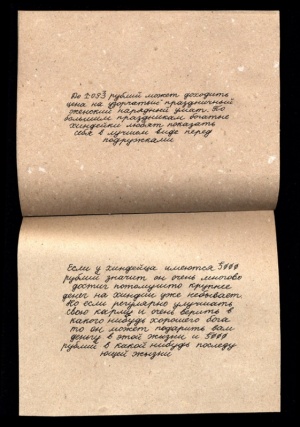 До 2093 рублий может доходить
цена на узорчатый праздничный
женский нарядный умат. По
большим праздникам богатые
хиндейки любят показать
себя в лучшом виде перед
подружками
Если у хиндейца имеются 5000
рублий значит он очень многово
достиг потомушто крупнее
денег на хиндии уже небывает
Но если регулярно улучшать
свою карму и очень верить в
какого нибудь хорошего бога
то он может подарить вам
деньгу в этой жызни и 5000
рублий в какой нибудь последу
ющей жызни